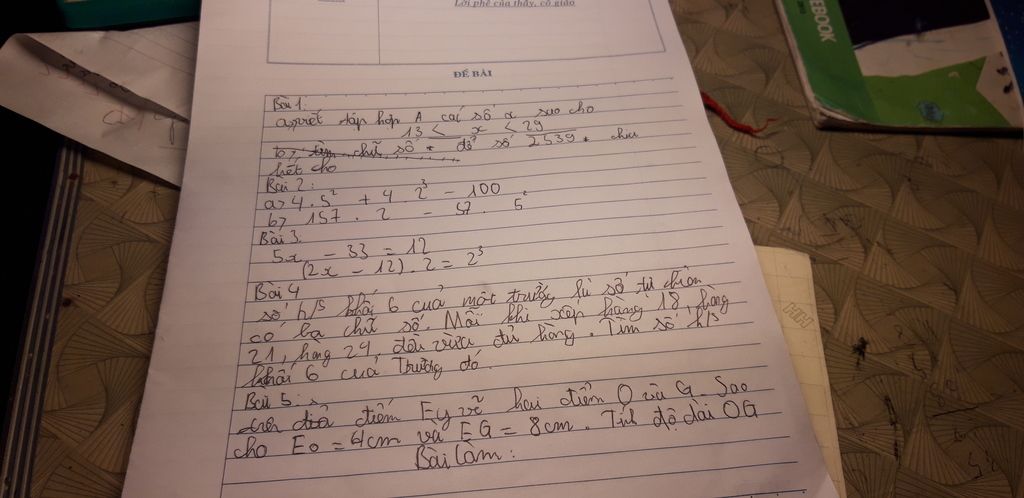 Lời phê của thầy, cô giáo
EBOOK
ĐỀ BÀI
Bài 1:
a, viết tập hợp A các số x sao cho
13 < x < 29
b, tìm chữ số * để số 2539* chia
hết cho
Bài 2:
a> 4 . 5² + 4 . 2³ - 100
b> 157 . 2 - 57 . 5²
Bài 3:
5x - 33 = 12
(2x - 12) . 2 = 2³
Bài 4
số h/s khối 6 của một trường là số tự nhiên
có ba chữ số. Mỗi khi xếp hàng 18, hàng
21, hàng 24, đều vừa đủ hàng. Tìm số h/s
khối 6 của Trường đó.
Bài 5:
trên tia điểm Ey vẽ hai điểm O và G. Sao
cho EO = 4cm và EG = 8cm. Tính độ dài OG
Bài làm: